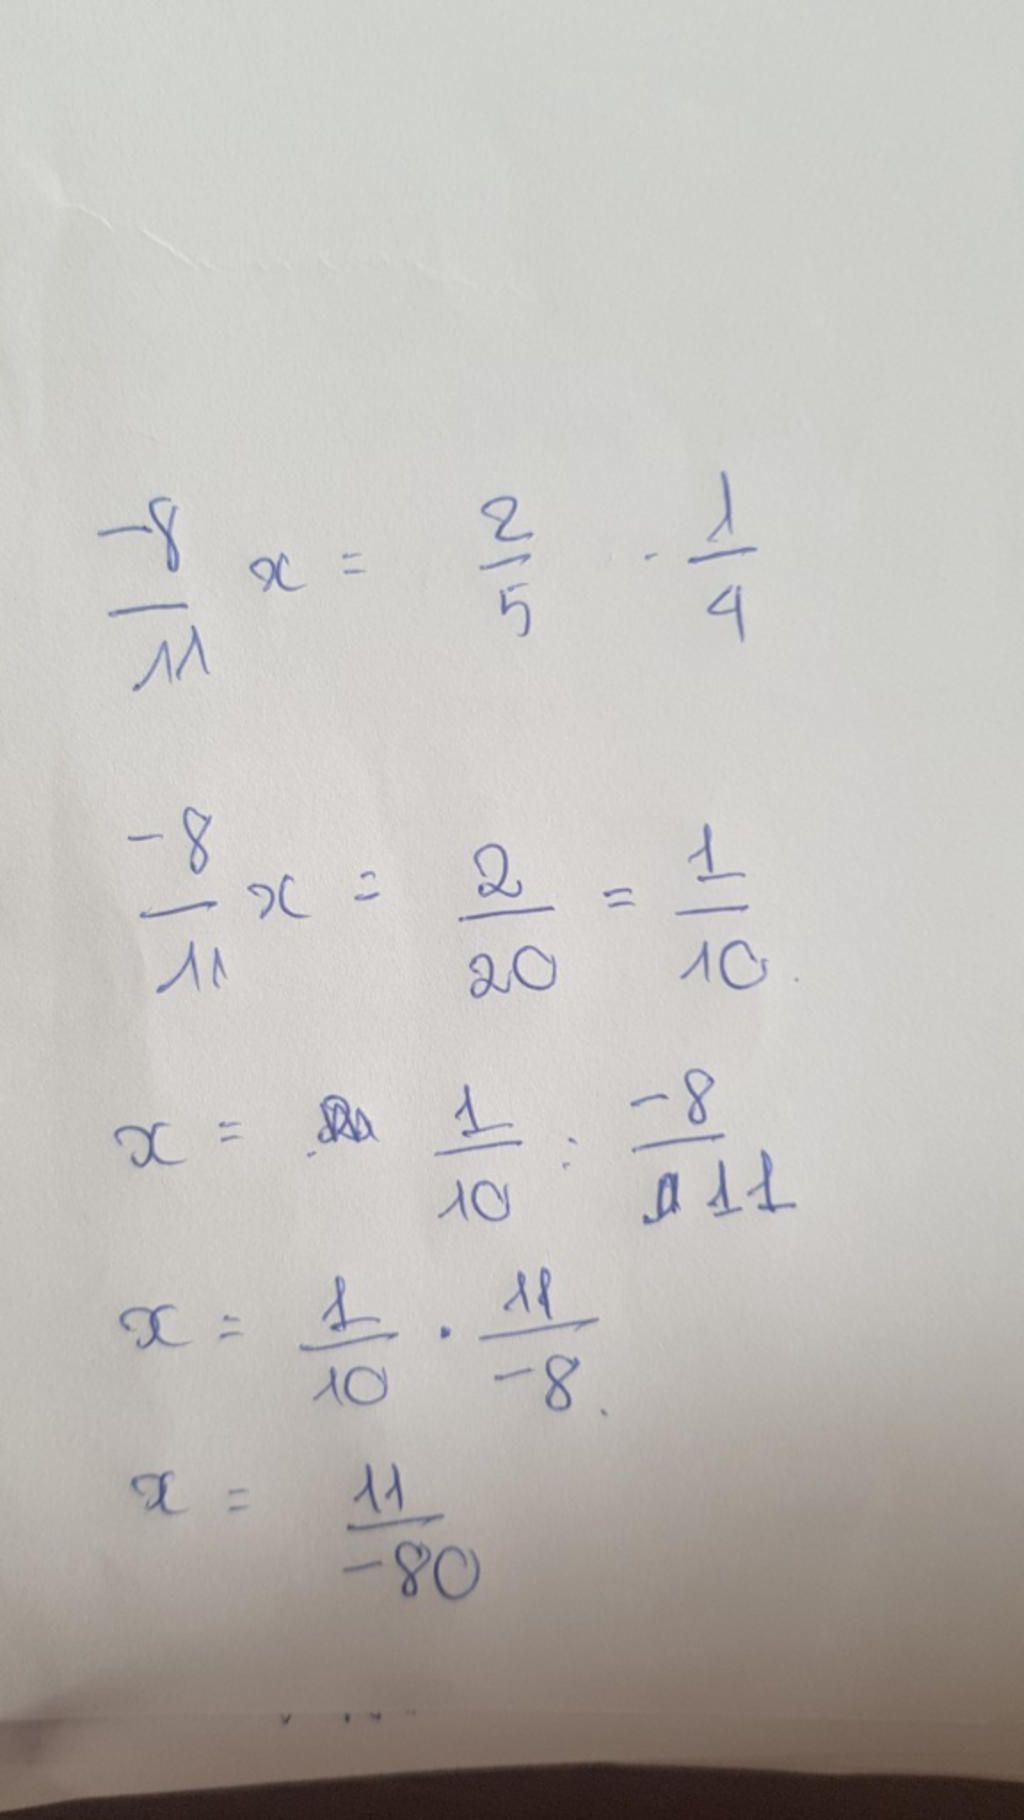 -8/11 x = 2/5 · 1/4
-8/11 x = 2/20 = 1/10
x = 1/10 : -8/11
x = 1/10 · 11/-8
x = 11/-80